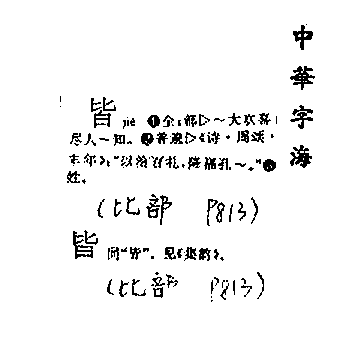 中華字海
皆 jiē ❶全;都▷～大欢喜|
尽人～知。❷普遍▷《诗·周颂·
丰年》:“以洽百礼,降福孔～。”❸
姓。
(比部 P813)
皆 同“皆”。见《集韵》。
(比部 P813)